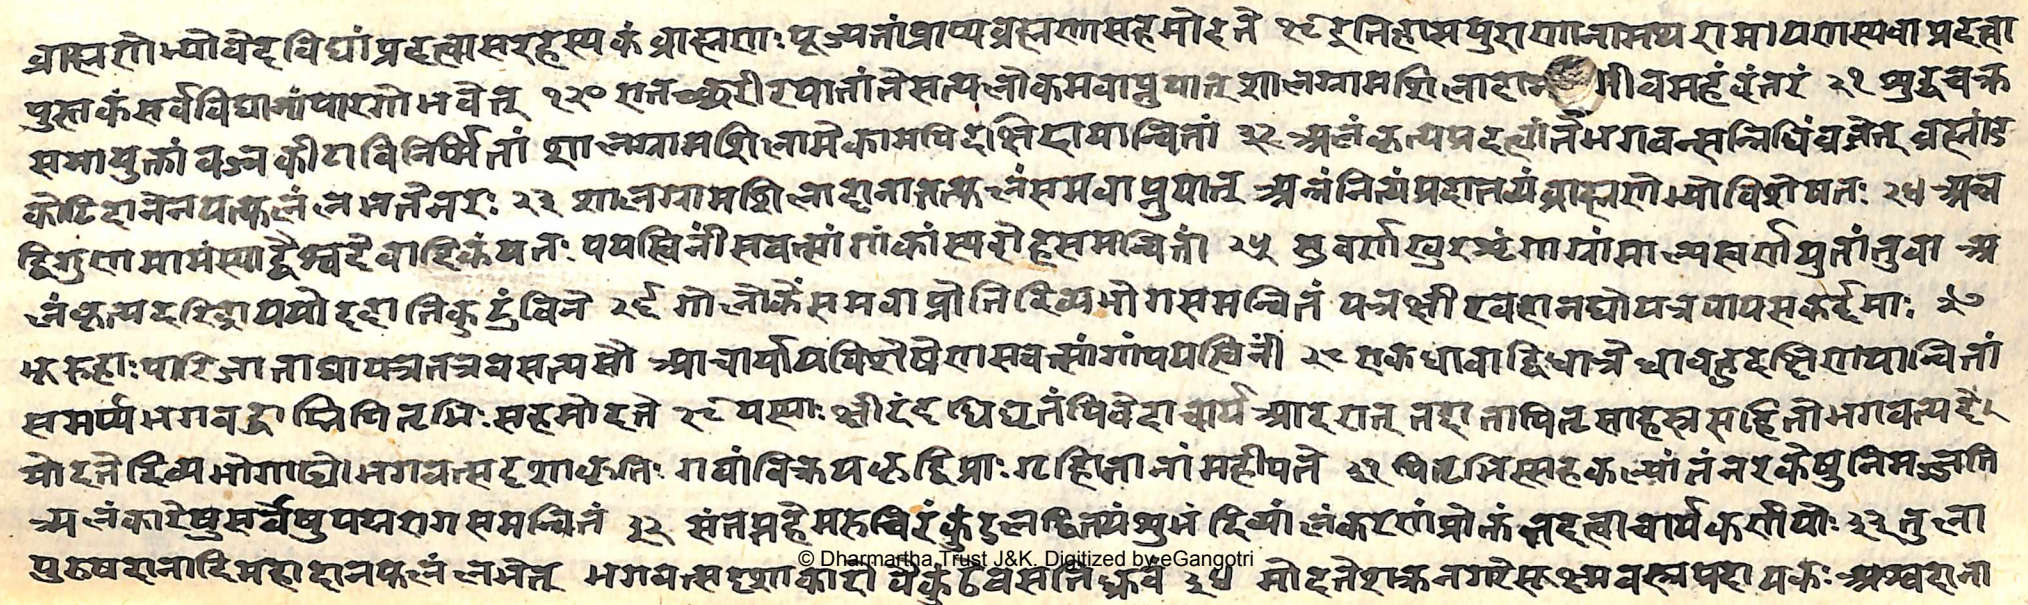 ब्राह्मणेभ्यो वेदविद्यां प्रदत्वा सरहस्यकं ब्राह्मणाः पूज्यतां प्राप्य ब्रह्मणा सह मोदते १९ इतिहासपुराणानामथ रामायणस्य वा प्रदत्वा
पुस्तकं सर्वविद्यानां पारगो भवेत् १२० सत्यलोकमवाप्नुयात् शालग्रामशिलादानं २१ शुद्धचक्र
समायुक्तां वज्रकीटविनिर्मितां शालग्रामशिलामेकामपि दक्षिणयान्वितां २२ अलंकृत्य प्रदत्वांते भगवत्सन्निधिं व्रजेत् ब्रह्मांड
कोटिदानेन यत्फलं लभते नरः २३ शालग्रामशिलादानात्तत्फलं समवाप्नुयात् अन्नं नित्यं प्रदातव्यं ब्राह्मणेभ्यो विशेषतः २४ अन्न
द्विगुणमामं स्याद्वैश्वदेवादिकं यतः पयस्विनीं सवत्सां गां कांस्यदोहसमन्वितां २५ सुवर्णखुरशृंगाग्रां माल्यस्वर्णयुतां तु वा अ
लंकृत्य दरिद्राय यो ददाति कुटुंबिने २६ गोलोकं समवाप्नोति दिव्यभोगसमन्वितं यत्र क्षीरवहा नद्यो यत्र पायसकर्दमाः २७
भूरुहाः पारिजाताद्या यत्र तत्र वसत्यसौ आचार्याय विशेषेण सवत्सां गां पयस्विनीं २८ एकधा वा द्विधा त्रेधा बहुदक्षिणयान्वितां
समर्प्य भगवद्धाम्नि पितृभिः सह मोदते २९ यस्याः क्षीरं दधि घृतं पिबेदाचार्य आदरात् तद्दाता पितृसाहस्रसहितो भगवत्पदे
मोदते दिव्यभोगाढ्यो भगवत्सदृशाकृतिः गवां विक्रय महीपते ३१ पितृभिस्सह कल्पांतं नरकेषु निमज्जति
अलंकारेषु सर्वेषु पद्मरागसमन्वितं ३२ संतप्तहेमरुचिरं कुंडलद्वितयं शुभं दिव्यालंकरणं प्रोक्तं तद्दत्वाचार्यकर्णयोः ३३ तुला
पुरुषदानादिमहादानफलं लभेत् भगवत्सदृशाकारो वैकुंठे वसति ध्रुवं ३४ मोदते शक्रनगरे सूक्ष्मवस्त्रप्रदायकः अश्वदाना
© Dharmartha Trust J&K. Digitized by eGangotri